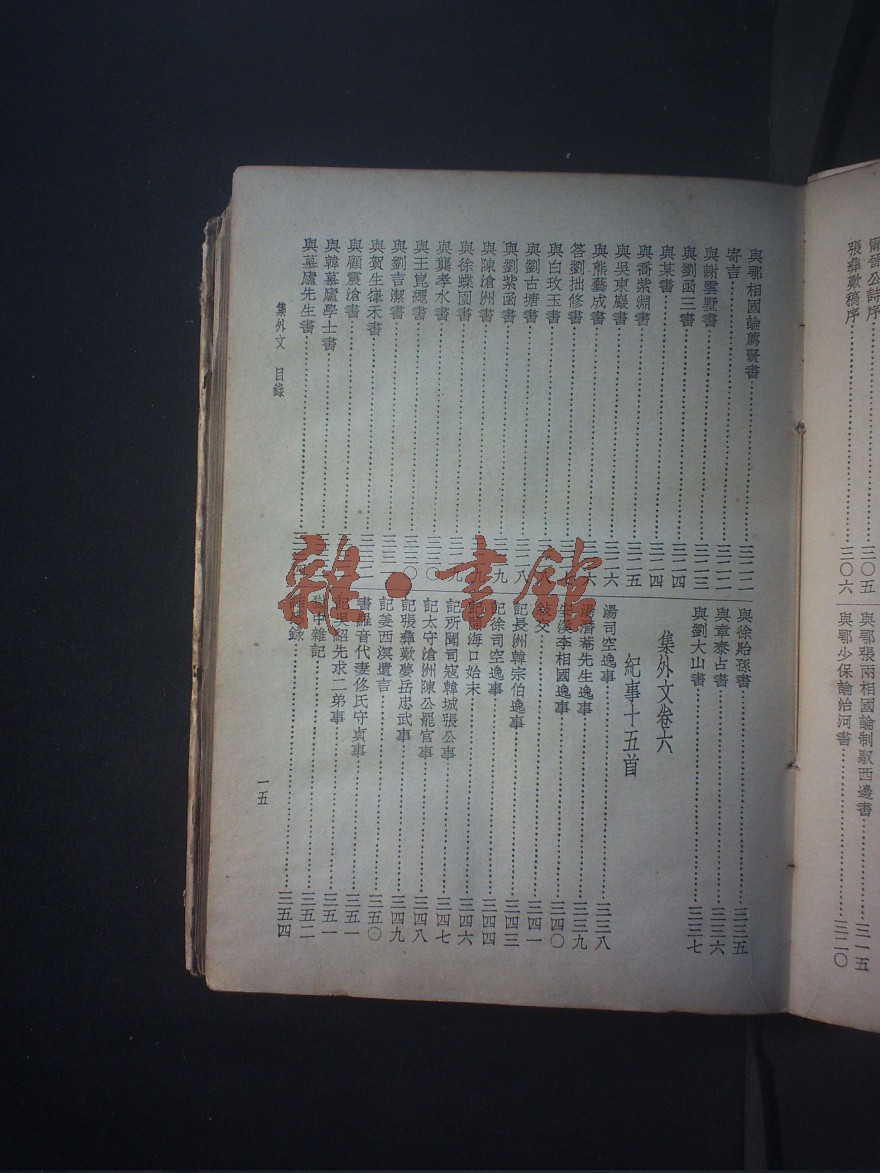 甯晉公詩序……三〇五
張彝歎稿序……三〇六
與鄂張兩相國論制馭西邊書……三一五
與鄂少保論治河書……三二〇
與鄂相國論薦賢書……三二二
寄言……三二二
與謝雲墅書……三二三
與劉函三書……三二四
與某書……三二四
與喬紫淵書……三二五
與吳東巖書……三二六
與熊藝成書……三二六
答劉拙修書
與白玫玉書
與劉古塘書
與劉紫函書
與陳滄洲書
與徐蝶園書
與龔孝水書……三三〇
與王崑繩書……三三〇
與劉言潔書
與賀生嵂禾書
與顧震滄書
與韓慕廬學士書
與慕廬先生書
與徐貽孫書……三三五
與章泰占書……三三六
與劉大山書……三三七
集外文卷六
紀事十五首
湯司空逸事……三三八
湯潛菴先生逸事……三三九
安溪李相國逸事……三四〇
敘交……三四一
記長洲韓宗伯逸事……三四三
記徐司空逸事……三四四
記開海口始末……三四六
記所聞司寇韓城張公事……三四七
記太守滄洲陳公罷官事……三四八
記張彝歎夢岳忠武事……三四九
記姜西溟遺言……三五〇
書羅音代妻佟氏守貞事……三五一
記吳紹先求二弟事……三五一
獄中雜記……三五二
錄……三五四
集外文 目錄
一五
雜·書館